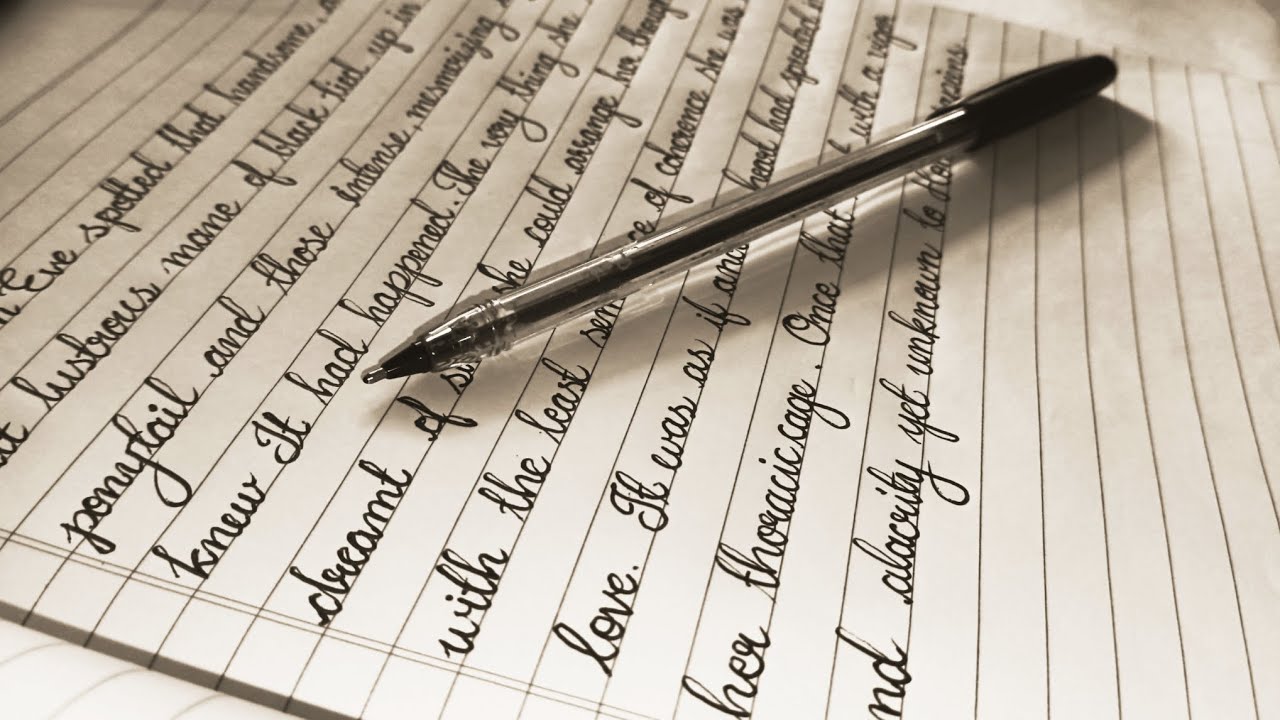 Eve spotted that handsome,
lustrous mane of black tied up in
ponytail and those intense, mesmerising
knew It had happened. The very thing she
dreamt of she could arrange her
with the least of coherence she was
love. It was as if heart had sprouted
her thoracic cage. Once that with a vigor
nd alacrity yet unknown to